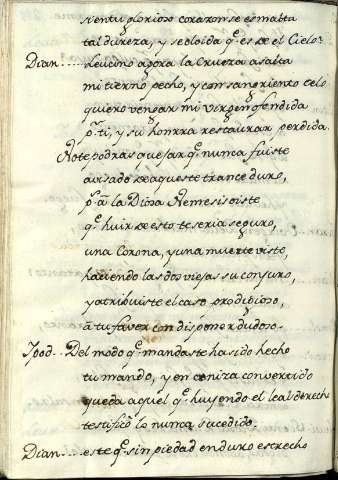 si en tu glorioso corazon se esmalta
tal dureza, y se olvida qᵉ es de el Cielo.
Dian..... Leucino agora la Crueza asalta
mi tierno pecho, y con sangriento celo
quiero vengar mi virgen ofendida
pʳ ti, y su honrra restaurar perdida.
No te podras quejar qᵉ nunca fuiste
avisado de aqueste trance duro,
pˢ à la Diosa Nemesis oiste
qᵉ huir de esto te seria seguro,
una Corona, y una muerte viste,
haciendo las dos viejas su conjuro,
y atribuiste el caso prodigioso,
â tu favor con disponer dudoso.
Ipod... Del modo qᵉ mandaste ha sido hecho
tu mando, y en ceniza convertido
queda aquel qᵉ huyendo el leal derecho
testificò lo nunca sucedido.
Dian..... este qᵉ sin piedad en duro estrecho